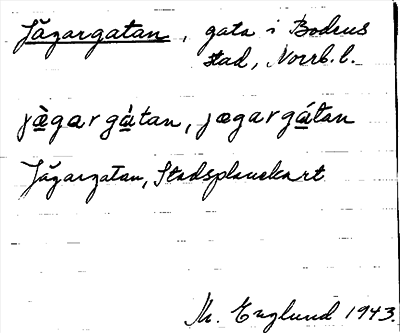 Jägargatan, gata i Bodens
stad, Norrb. l.
jæ̀gargàtan, jægargátan
Jägargatan, Stadsplanekart
M. Englund 1943.